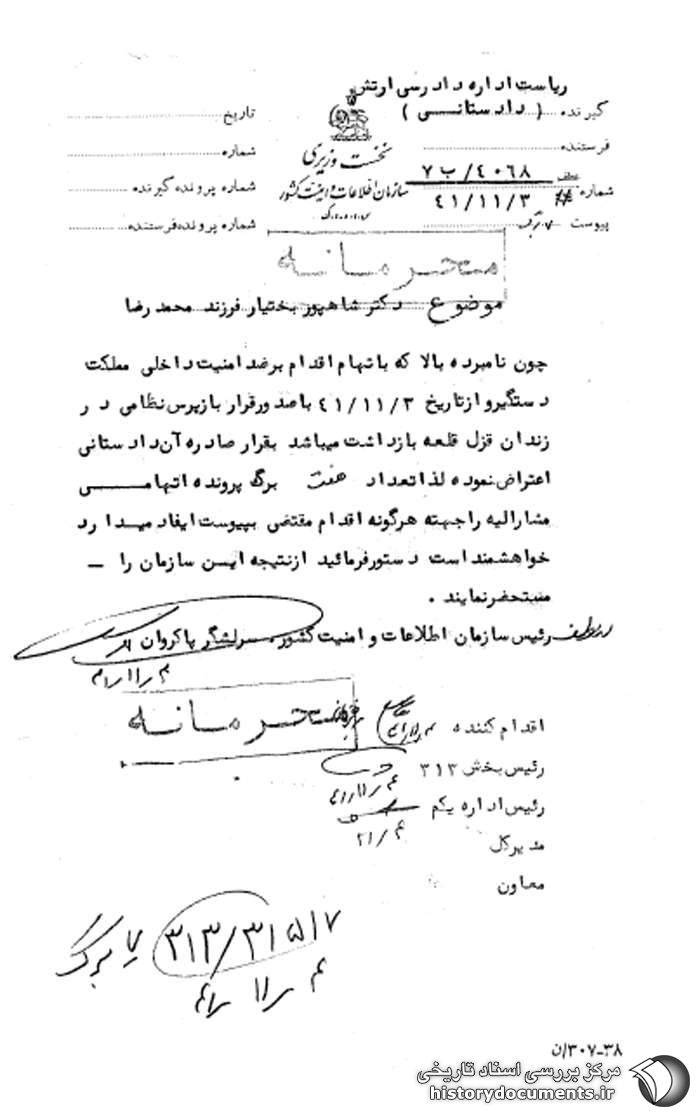 ریاست اداره دادرسی ارتش
گیرنده ( دادستانی )
فرستنده
عطف ۴۰۶۸/ب ۷
شماره ۴۱/۱۱/۳
پیوست ۷ برگ
نخست وزیری
سازمان اطلاعات و امنیت کشور
س.ا.و.ا.ک
تاریخ
شماره
شماره پرونده گیرنده
شماره پرونده فرستنده
محرمانه
موضوع دکتر شاهپور بختیار فرزند محمد رضا
چون نامبرده بالا که باتهام اقدام برضد امنیت داخلی مملکت
دستگیر و از تاریخ ۴۱/۱۱/۳ با صدور قرار بازپرس نظامی در
زندان قزل قلعه بازداشت میباشد بقرار صادره آن دادستانی
اعتراض نموده لذا تعداد هفت برگ پرونده اتهامی
مشارالیه را جهته هرگونه اقدام مقتضی بپیوست ایفاد میدارد
خواهشمند است دستور فرمائید ازنتیجه ایسن سازمان را –
مستحضر نمایند .
از طرف رئیس سازمان اطلاعات و امنیت کشور . سرلشگر پاکروان
۴ ر۱۱ ر۴۱
محرمانه
اقدام کننده
رئیس بخش ۳۱۳
۴ ر۱۱ ر۴۱
رئیس اداره یکم
مدیرکل
معاون
۳۱۳/۳۱۵۱۷
۷ برگ
۴ ر۱۱ ر۴۱
۳۰۷-۳۸/ن
مرکز بررسی اسناد تاریخی
historydocuments.ir